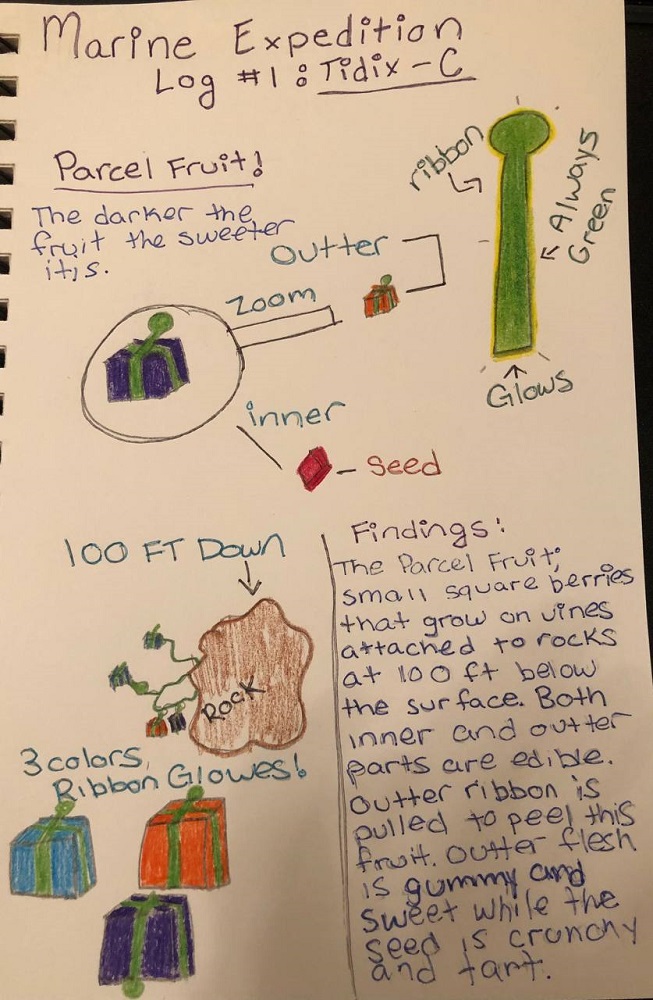 Marine Expedition
Log #1: Tidix-C
Parcel Fruit!
The darker the
fruit the sweeter
it;s.
ribbon
Always
Green
Glows
Outter
Zoom
inner
Seed
100 FT Down
ROCK
3 colors,
Ribbon Glowes!
Findings:
The Parcel Fruit;
small square berries
that grow on vines
attached to rocks
at 100 ft below
the surface. Both
inner and outter
parts are edible.
Outter ribbon is
pulled to peel this
fruit. Outter flesh
is gummy and
sweet while the
seed is crunchy
and tart.